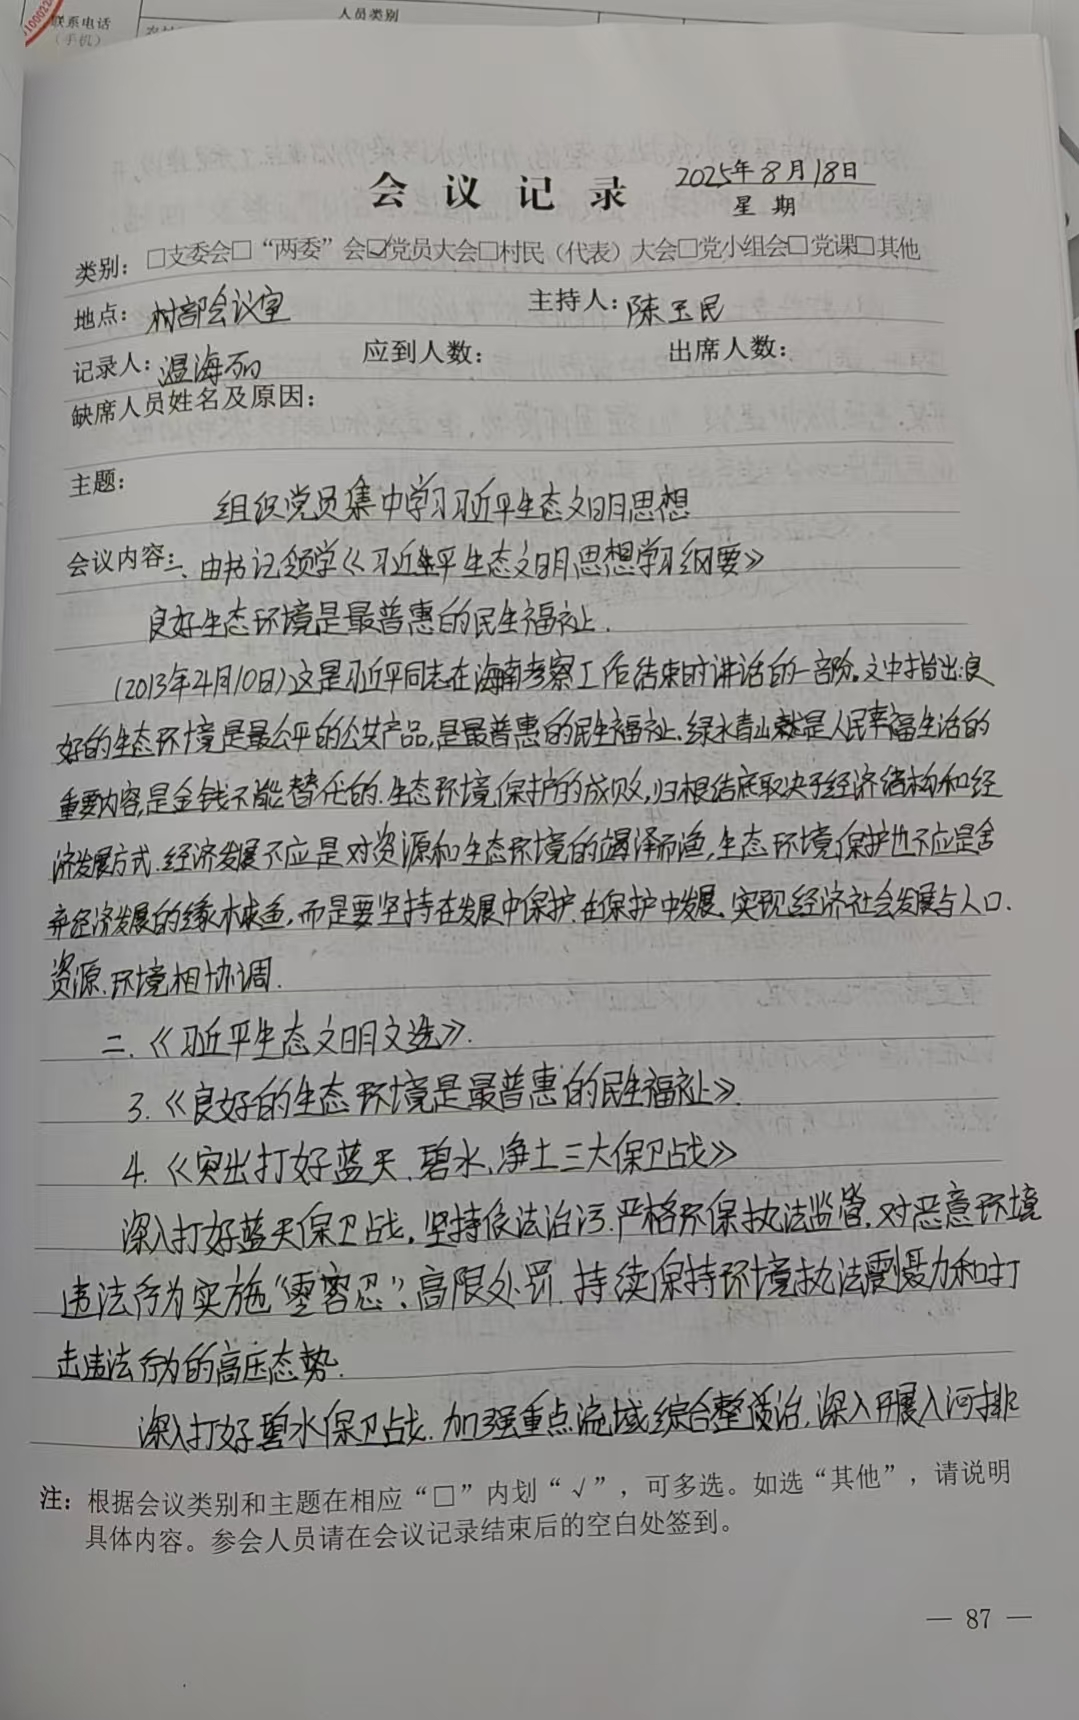 联系电话
（手机）
人员类别
会议记录
2025年8月18日
星期
类别：□支委会□“两委”会☑党员大会□村民（代表）大会□党小组会□党课□其他
地点：村部会议室 主持人：陈玉民
记录人：温海丽 应到人数： 出席人数：
缺席人员姓名及原因：
主题：
组织党员集中学习习近平生态文明思想
会议内容：一、由书记领学《习近平生态文明思想学习纲要》
良好生态环境是最普惠的民生福祉.
(2013年4月10日)这是习近平同志在海南考察工作结束时讲话的一部份。文中指出:良
好的生态环境是最公平的公共产品,是最普惠的民生福祉.绿水青山就是人民幸福生活的
重要内容,是金钱不能替代的.生态环境保护的成败,归根结底取决于经济结构和经
济发展方式.经济发展不应是对资源和生态环境的竭泽而渔,生态环境保护也不应是舍
弃经济发展的缘木求鱼,而是要坚持在发展中保护.在保护中发展.实现经济社会发展与人口.
资源.环境相协调.
二.《习近平生态文明文选》.
3.《良好的生态环境是最普惠的民生福祉》.
4.《突出打好蓝天.碧水,净土三大保卫战》
深入打好蓝天保卫战.坚持依法治污.严格环保执法监管.对恶意环境
违法行为实施“零容忍”、高限处罚.持续保持环境执法震慑力和打
击违法行为的高压态势.
深入打好碧水保卫战.加强重点流域综合整治.深入开展入河排
注：根据会议类别和主题在相应“□”内划“√”，可多选。如选“其他”，请说明
具体内容。参会人员请在会议记录结束后的空白处签到。
— 87 —